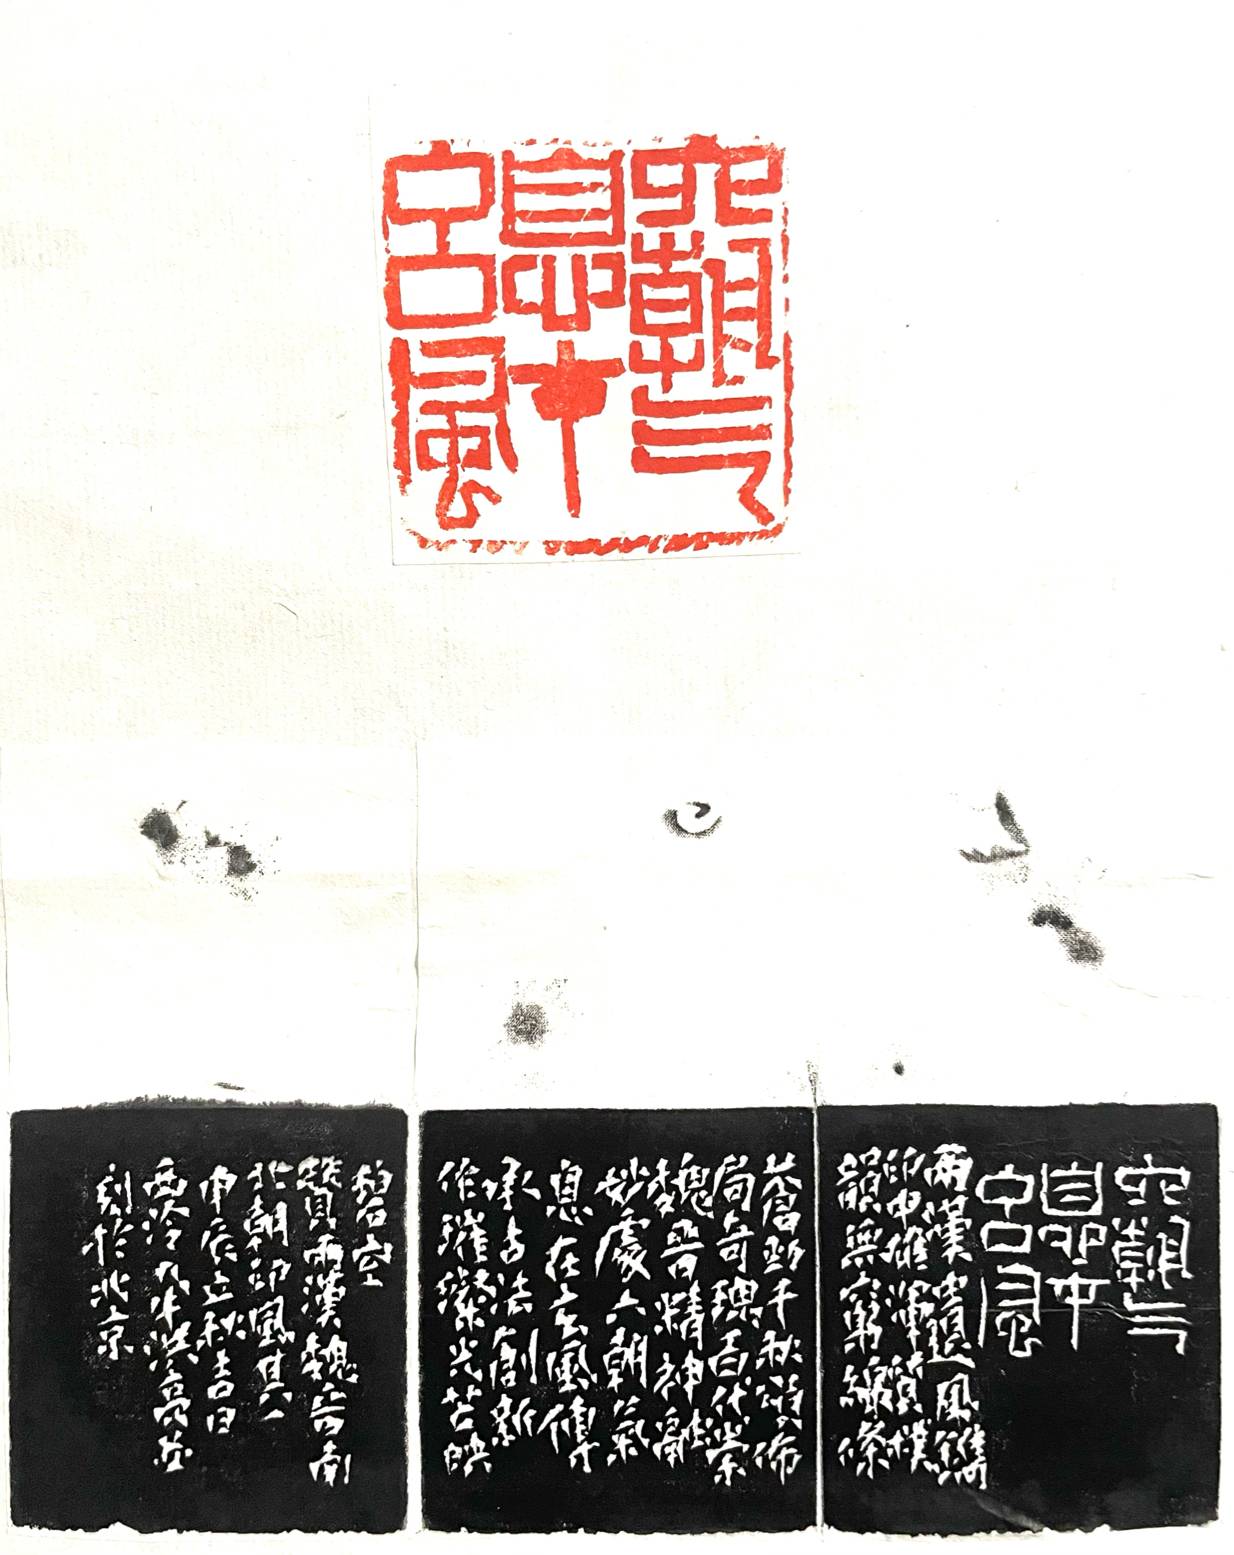 六朝气
息在
宫风
六朝气
息在
宫风
兩漢遺風鐫
印中雄渾質樸
韻無窮線條
蒼勁千秋頌佈
局奇瑰百代崇
魏晉精神融
妙處六朝氣
息在風傳
承古法創新
作璀璨光芒映
碧空
贊兩漢魏晉南
北朝印風其
甲辰立秋吉日
西泠九牛洪亮並
刻於北京